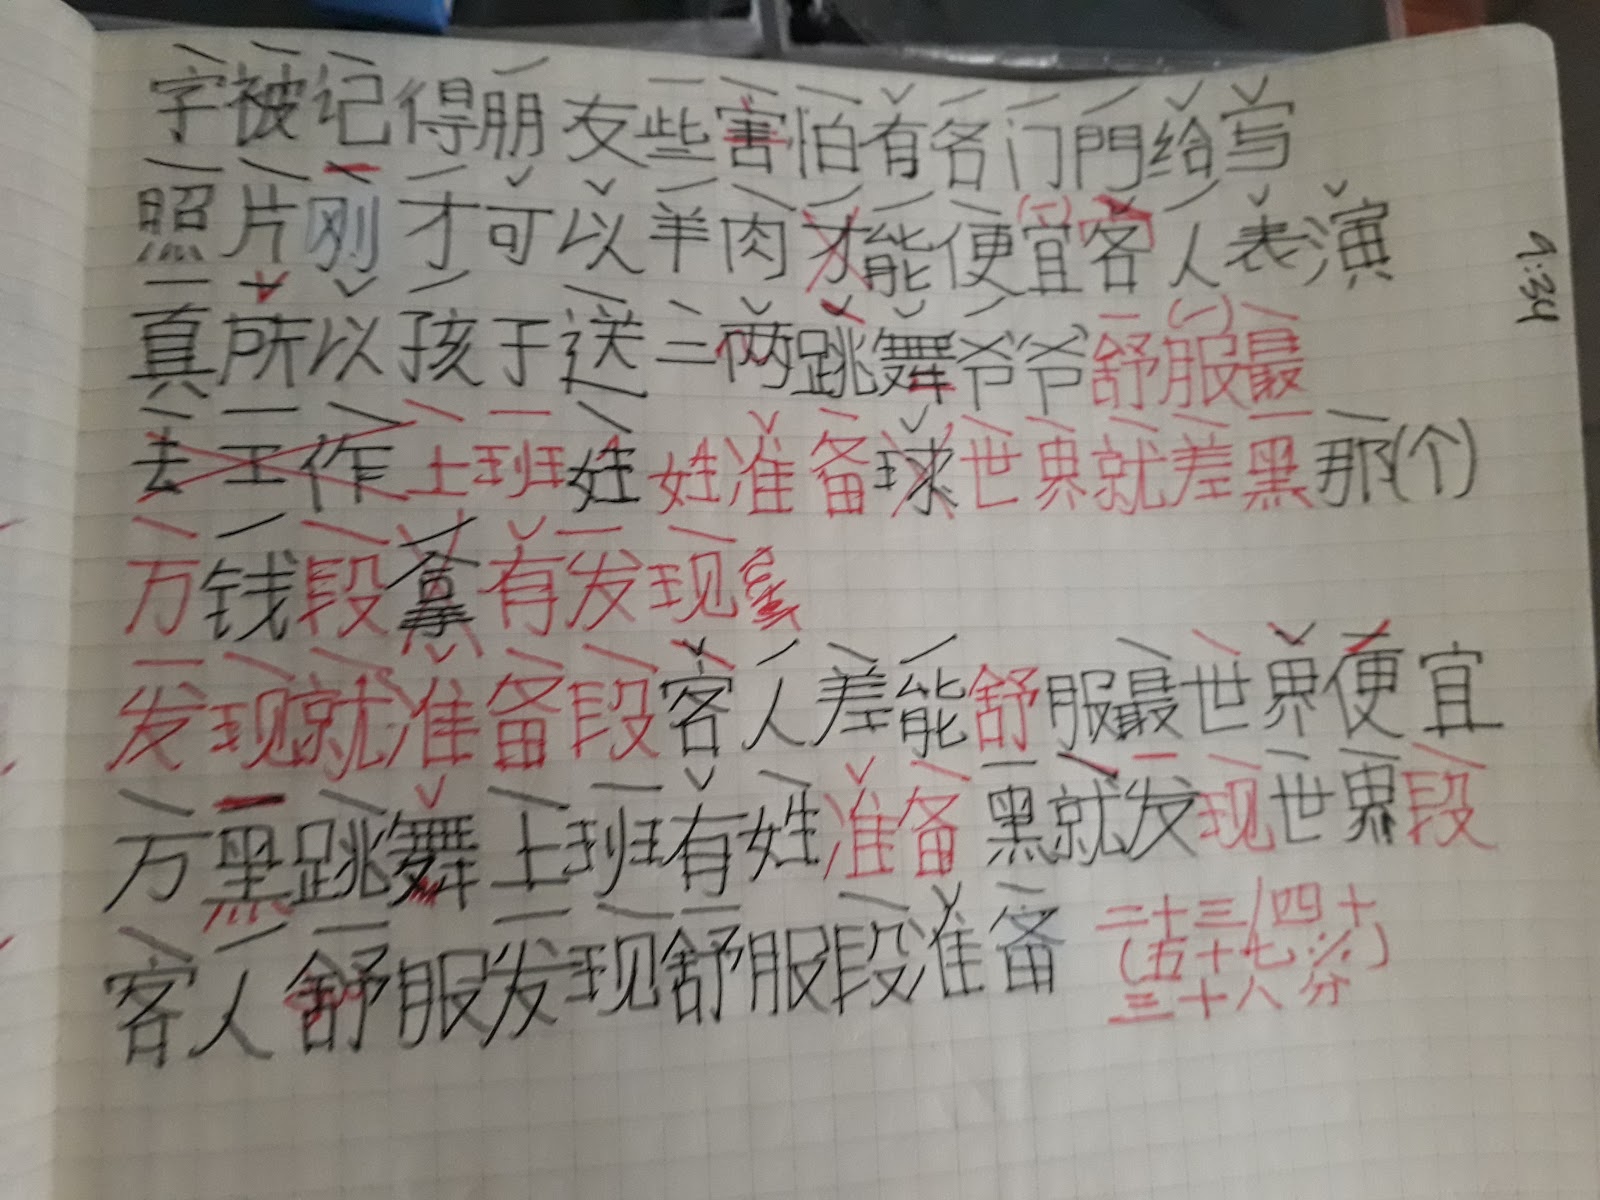 字被记得朋友些害怕有名门門给写
照片刚才可以羊肉才能便宜客人表演
真所以孩子送三两跳舞爷爷舒服最
去工作上班姓姓准备球世界就差黑那(个)
万钱段拿有发现
发现就准备段客人差能舒服最世界便宜
万黑跳舞上班有姓准备黑就发现世界段
客人舒服发现舒服段准备
二十三/四十
(五十七%)
三十八分
9:34